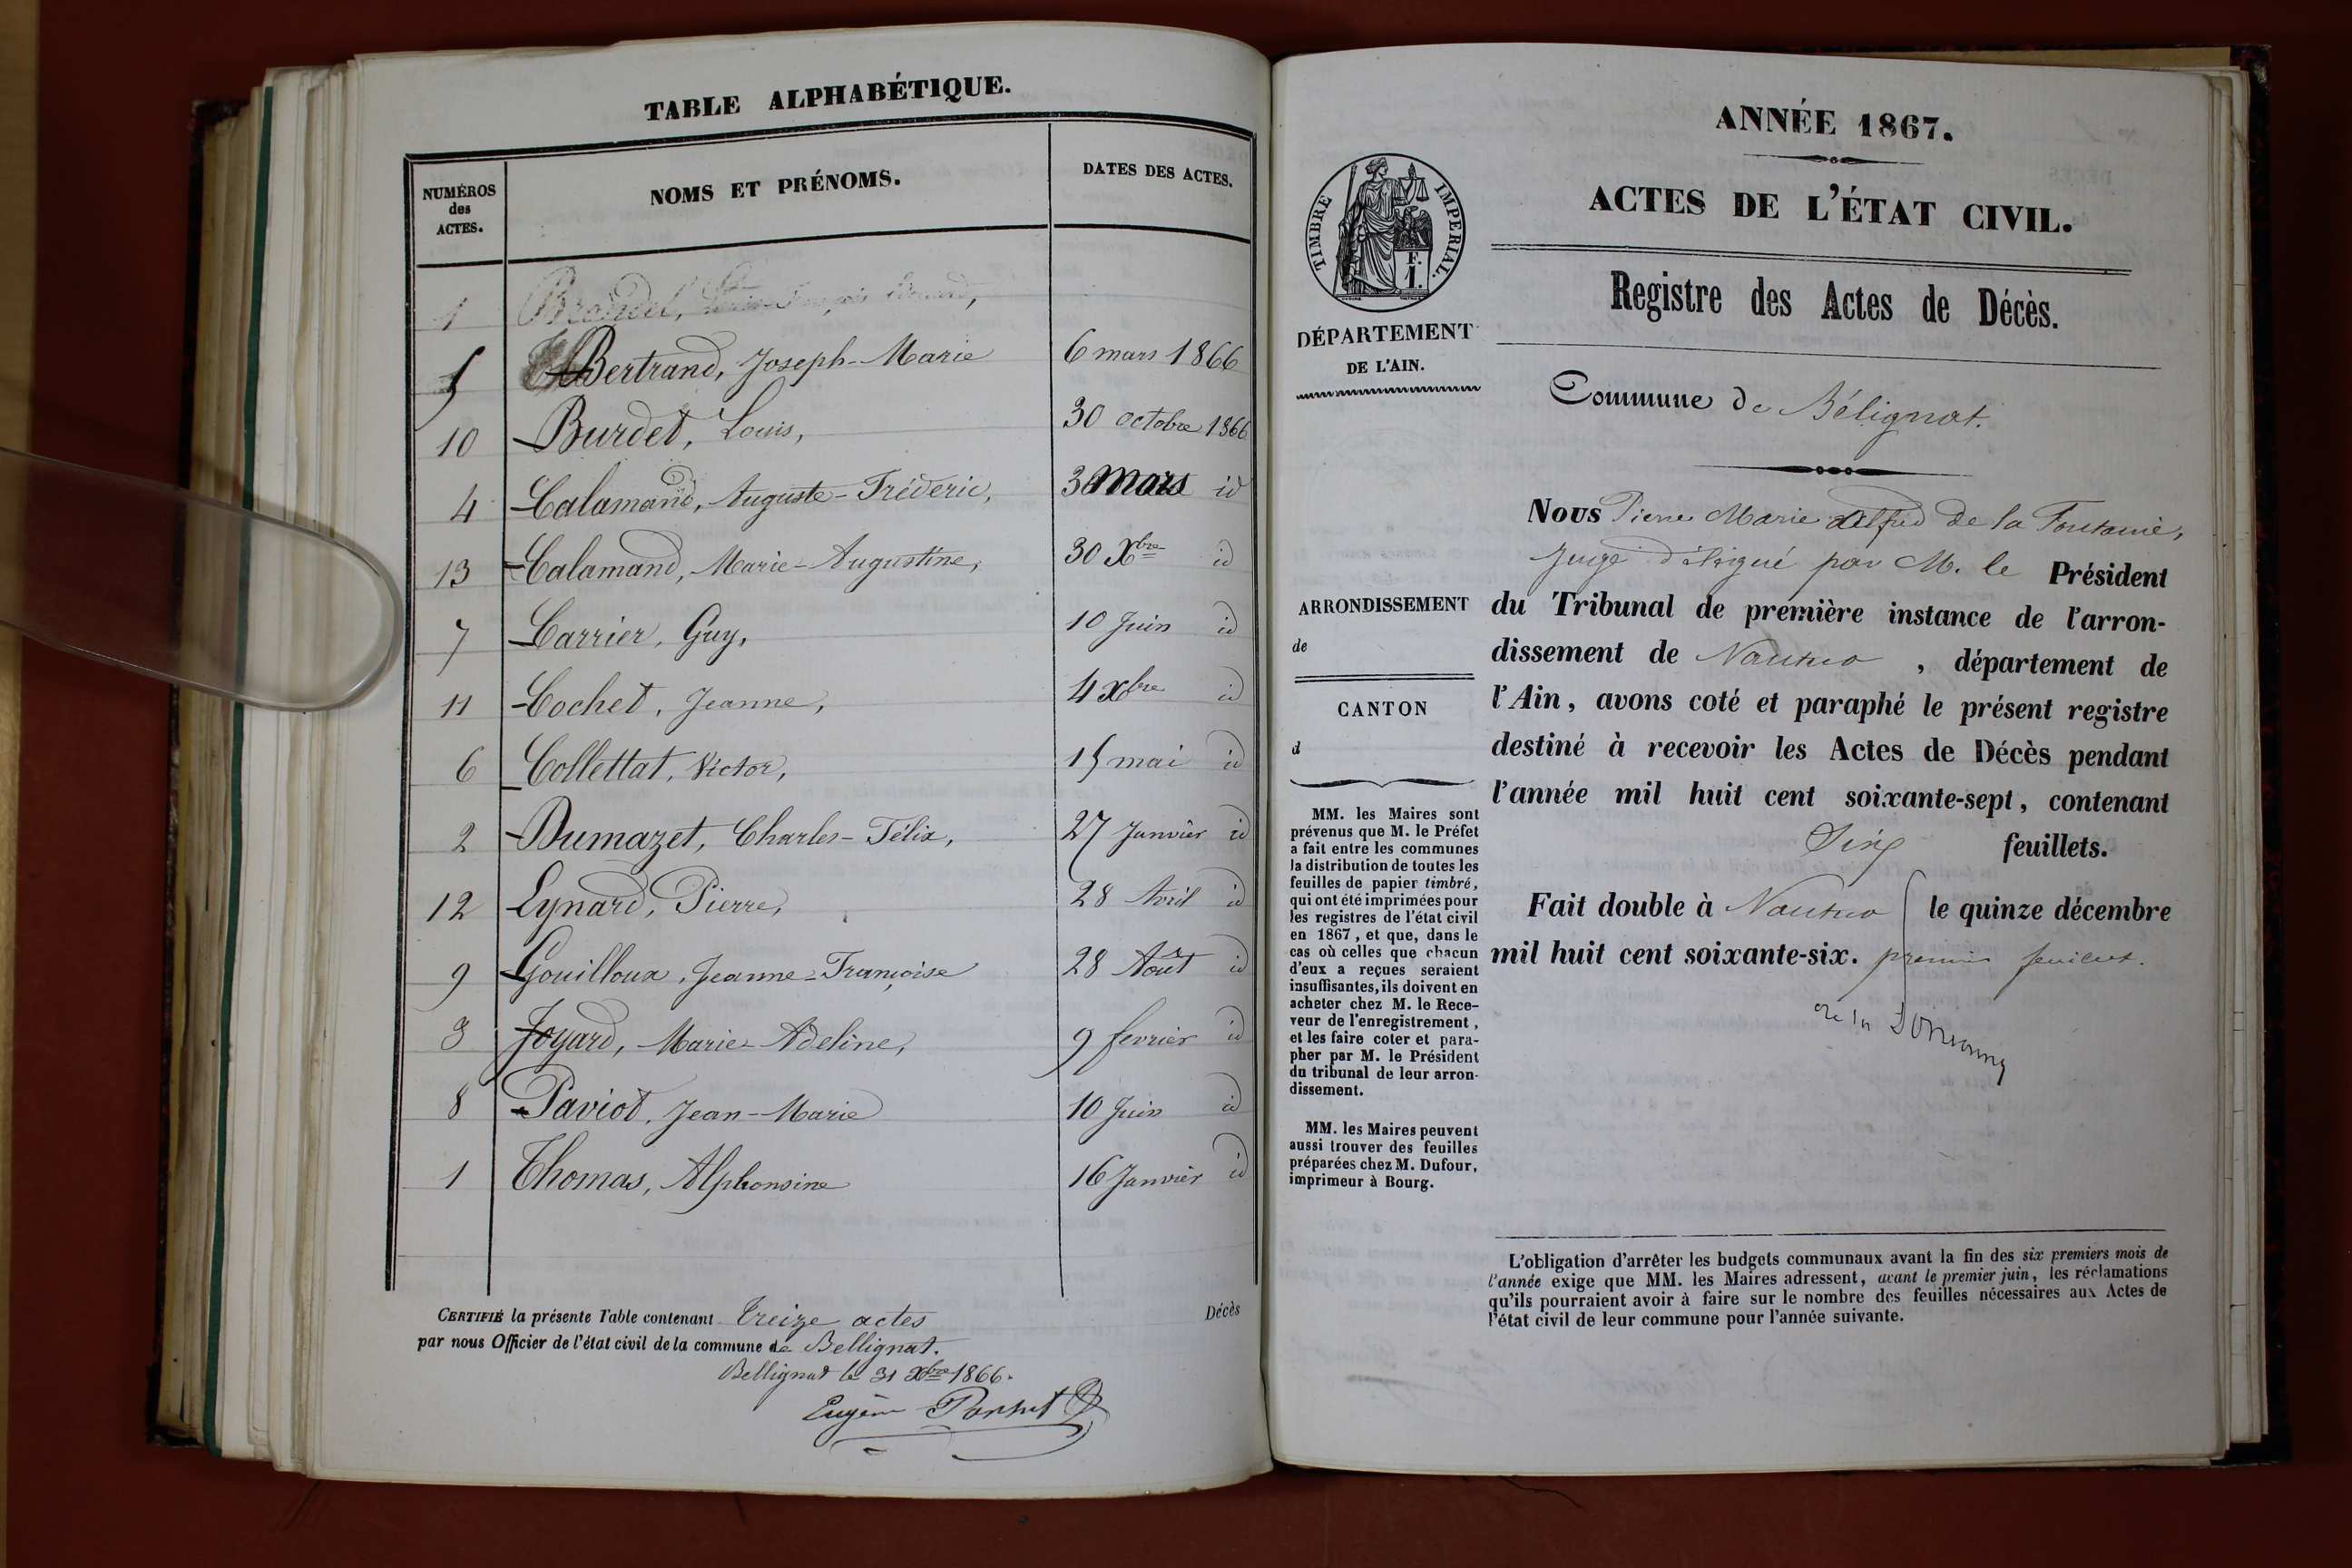 TABLE ALPHABÉTIQUE.
NUMÉROS des ACTES. NOMS ET PRÉNOMS. DATES DES ACTES.
1
5 Bertrand, Joseph-Marie 6 mars 1866
10 Burdet, Louis, 30 octobre 1866
4 Calamand, Auguste-Fréderic, 3 mars id
13 Calamand, Marie-Augustine, 30 Xbre id
7 Carrier, Guy, 10 Juin id
11 Cochet, Jeanne, 4 Xbre id
6 Collettat, Victor, 15 mai id
2 Dumazet, Charles-Félix, 27 Janvier id
12 Eynard, Pierre, 28 Avril id
9 Gouilloux, Jeanne-Françoise 28 Août id
3 Joyard, Marie-Adeline, 9 fevrier id
8 Paviot, Jean-Marie 10 Juin id
1 Thomas, Alphonsine 16 Janvier id
CERTIFIÉ la présente Table contenant Treize actes Décès
par nous Officier de l'état civil de la commune de Bellignat.
Bellignat le 31 Xbre 1866.
Eugène
ANNÉE 1867.
ACTES DE L'ÉTAT CIVIL.
Registre des Actes de Décès.
TIMBRE IMPERIAL.
F.
1.
DÉPARTEMENT
DE L'AIN.
Commune de Bélignat.
Nous Pierre Marie Alfred de la Fontaine,
Juge délégué par M. le Président
du Tribunal de première instance de l'arron-
dissement de Nantua, département de
l'Ain, avons coté et paraphé le présent registre
destiné à recevoir les Actes de Décès pendant
l'année mil huit cent soixante-sept, contenant
feuillets.
Fait double à Nantua le quinze décembre
mil huit cent soixante-six. premier feuillet.
ARRONDISSEMENT
de
CANTON
d
MM. les Maires sont
prévenus que M. le Préfet
a fait entre les communes
la distribution de toutes les
feuilles de papier timbré,
qui ont été imprimées pour
les registres de l'état civil
en 1867, et que, dans le
cas où celles que chacun
d'eux a reçues seraient
insuffisantes, ils doivent en
acheter chez M. le Rece-
veur de l'enregistrement,
et les faire coter et para-
pher par M. le Président
du tribunal de leur arron-
dissement.
MM. les Maires peuvent
aussi trouver des feuilles
préparées chez M. Dufour,
imprimeur à Bourg.
L'obligation d'arrêter les budgets communaux avant la fin des six premiers mois de
l'année exige que MM. les Maires adressent, avant le premier juin, les réclamations
qu'ils pourraient avoir à faire sur le nombre des feuilles nécessaires aux Actes de
l'état civil de leur commune pour l'année suivante.